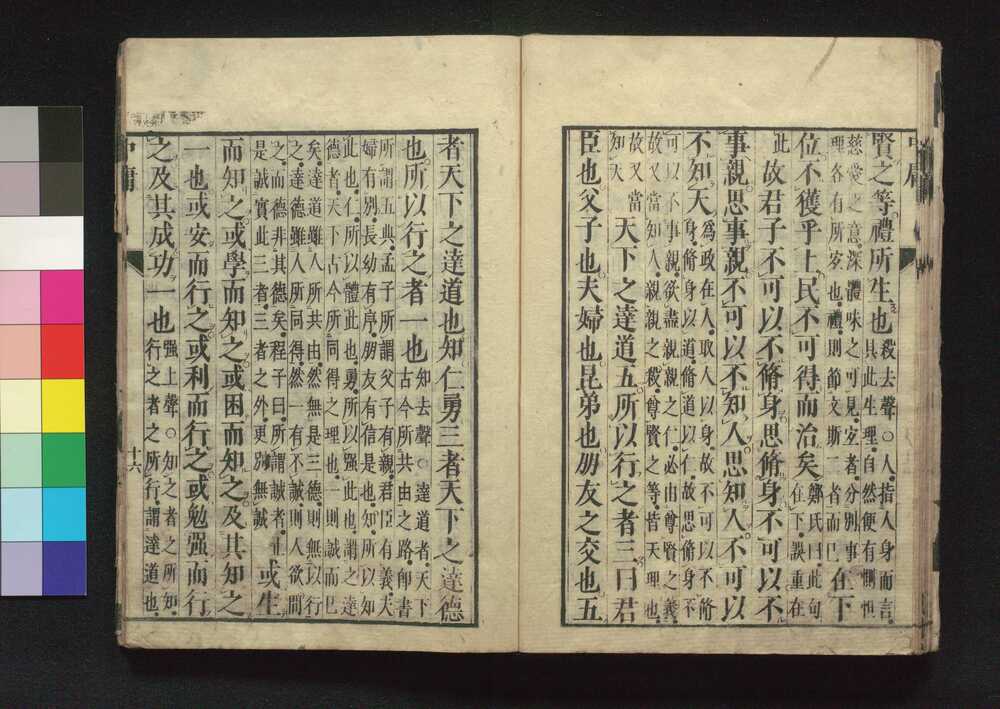 中庸
賢之等禮所生也
殺去聲○人指人身而言
具此生理自然便有惻怛
慈愛之意深體味之可見宐者分別事
理各有所宐也禮則節文斯二者而已
在下
位不獲乎上民不可得而治矣
鄭氏曰此句
在下誤重在
此
故君子不可以不脩身思脩身不可以不
事親思事親不可以不知人思知人不可以
不知天
爲政在人取人以身故不可以不脩
身脩身以道脩道以仁故思脩身不
可以不事親欲盡親親之仁必由尊賢之義
故又當知人親親之殺尊賢之等皆天理也
故又當
知天
天下之達道五所以行之者三曰君
臣也父子也夫婦也昆弟也朋友之交也五
者天下之達道也知仁勇三者天下之達德
也所以行之者一也
知去聲○達道者天下
古今所共由之路卽書
所謂五典孟子所謂父子有親君臣有義夫
婦有別長幼有序朋友有信是也知所以知
此也仁所以體此也勇所以强此也謂之達
德者天下古今所同得之理也一則誠而已
矣達道雖人所共由然無是三德則無以行
之達德雖人所同得然一有不誠則人欲間
之而德非其德矣程子曰所謂誠者止
是誠實此三者三者之外更別無誠
或生
而知之或學而知之或困而知之及其知之
一也或安而行之或利而行之或勉强而行
之及其成功一也
强上聲○知之者之所知
行之者之所行謂達道也
中庸
十六